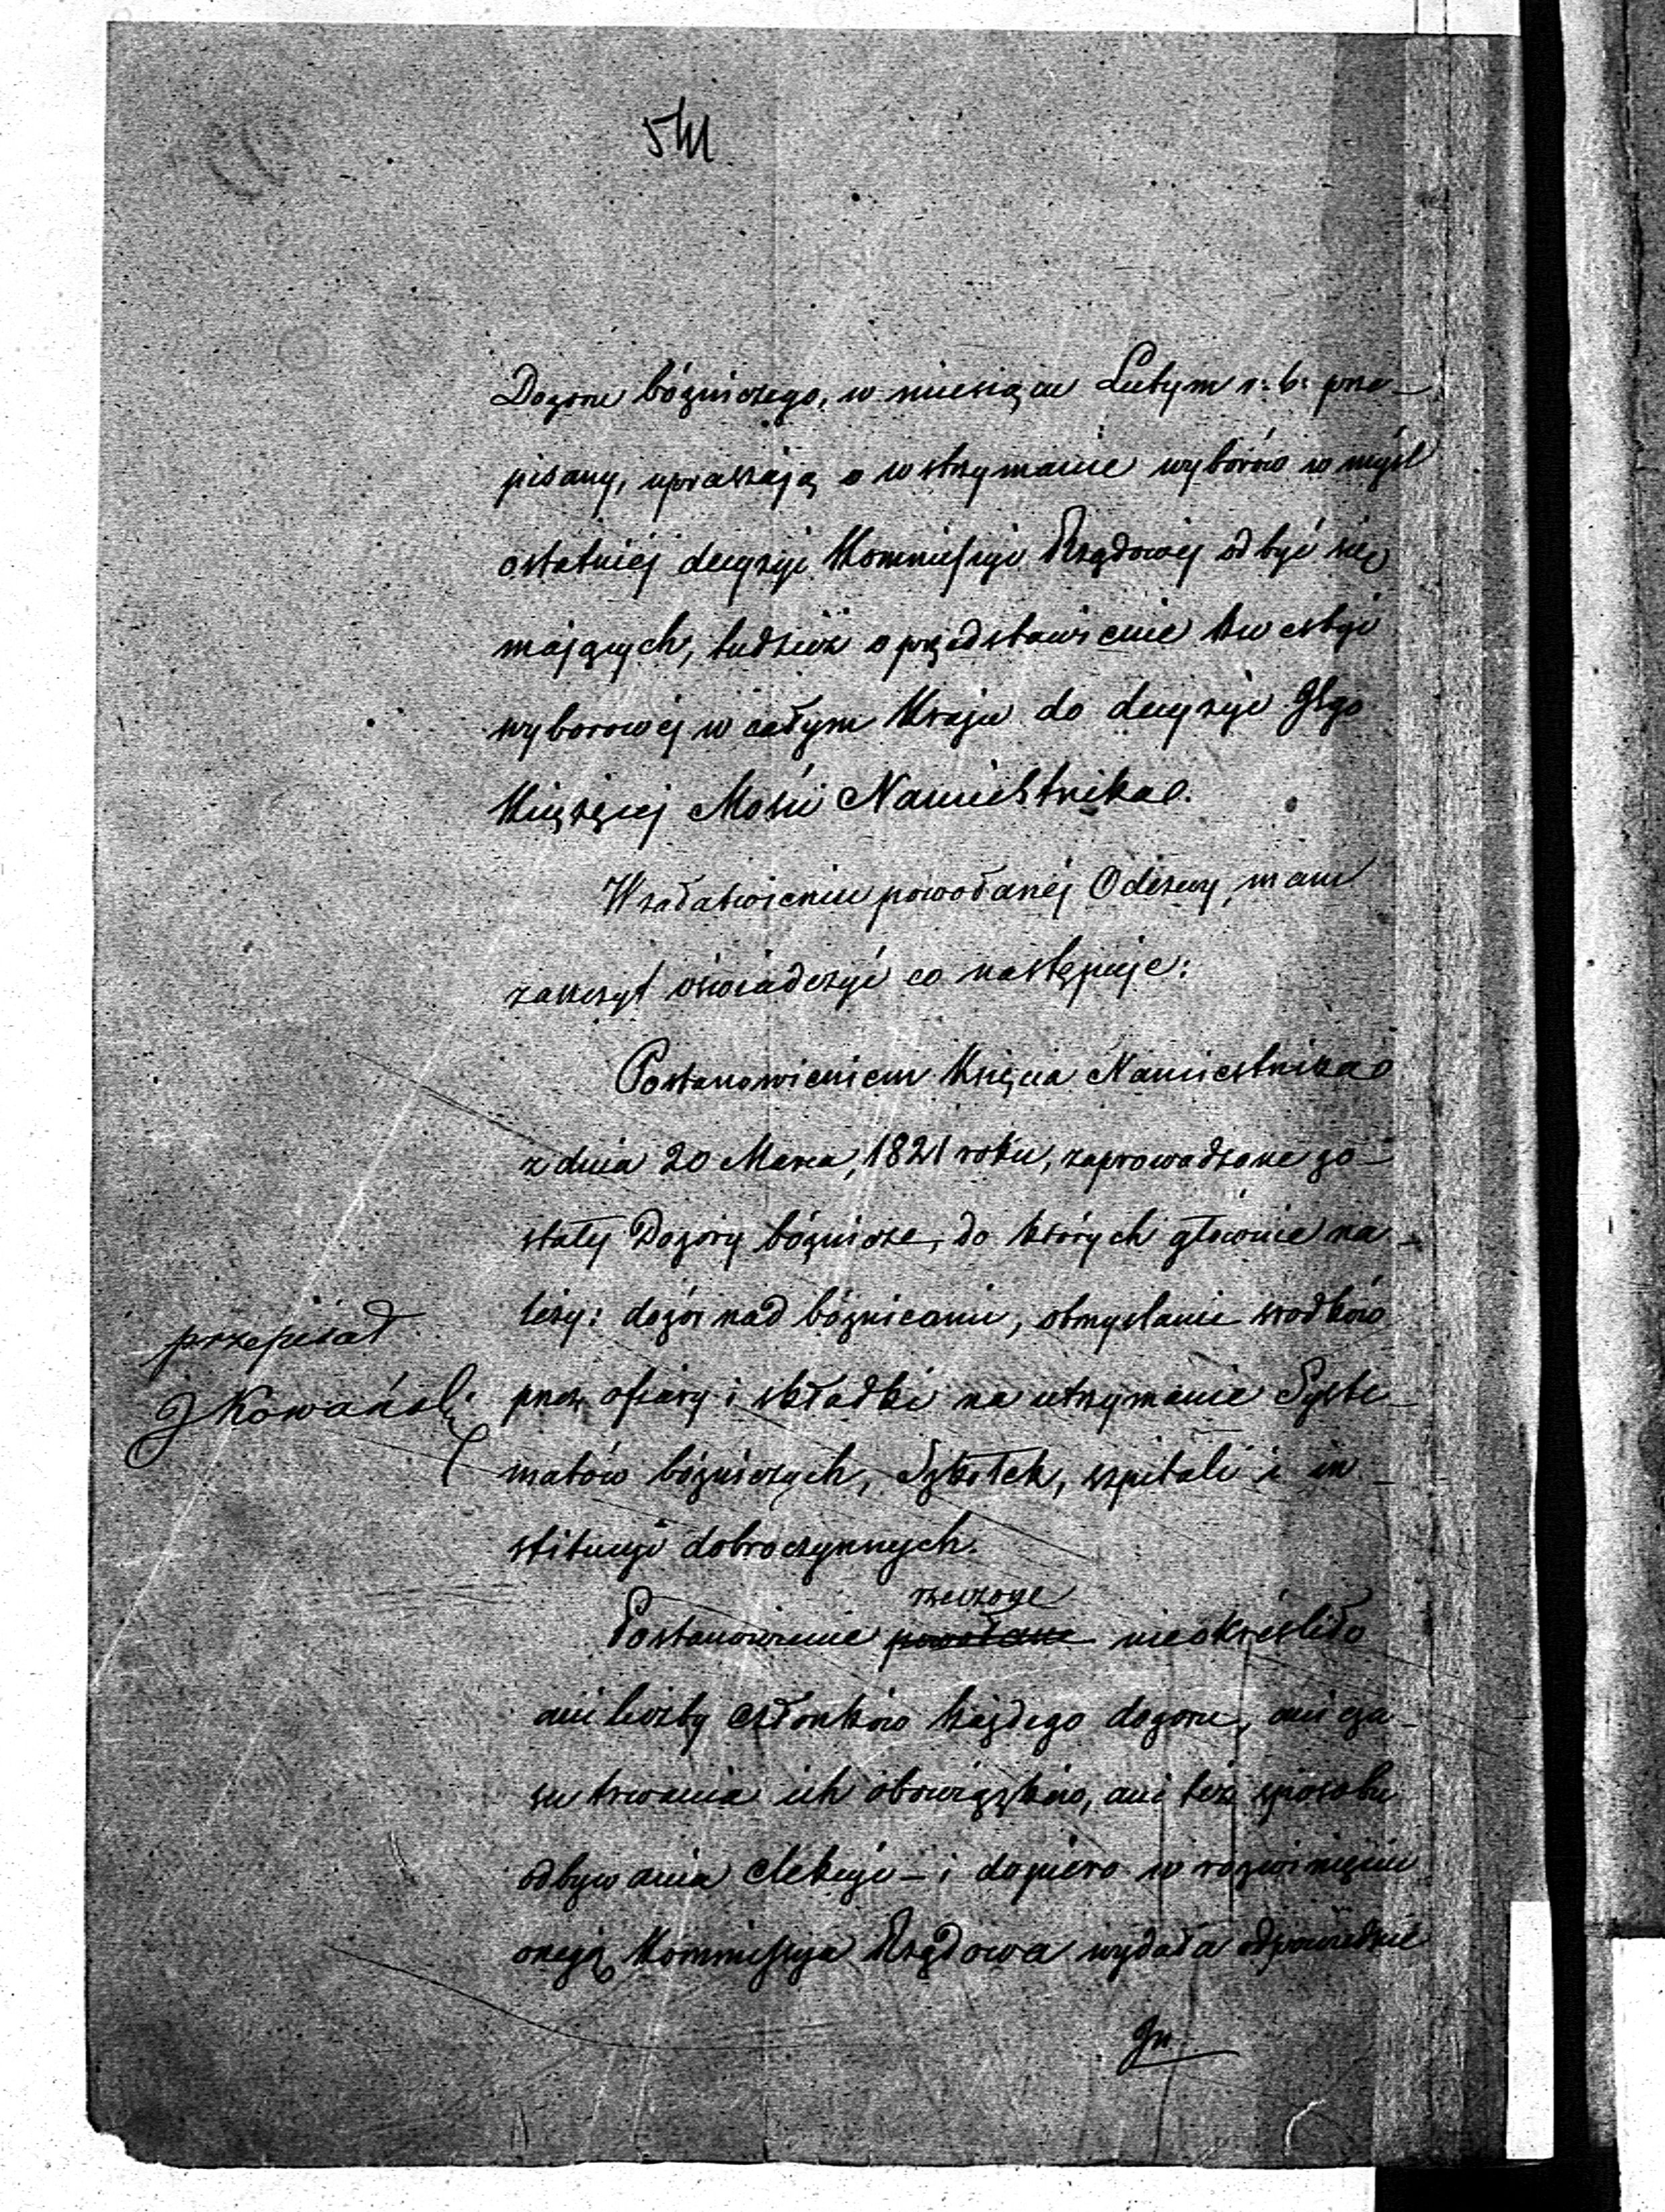 Dozoru bóżniczego, w miesiącu Lutym r: b: prze-
pisany, upraszają o wstrzymanie wyborów w myśl
ostatniej decyzyi Kommissyi Rządowej odbyć się
mających, tudzież o przedstawienie kwestyi
wyborowej w całym Kraju do decyzyi JEgo
Książęcej Mości Namiestnika.
W załatwieniu powołanej Odezwy, mam
zaszczyt oświadczyć co następuje:
Postanowieniem Księcia Namiestnika
z dnia 20 Marca, 1821 roku, zaprowadzone zo-
stały Dozory bóżnicze, do których głównie na-
leży: dozór nad bóżnicami, obmyślanie srodków
przez ofiary i składki na utrzymanie Syste-
matów bóżniczych, Szkółek, szpitali i in-
stitucyi dobroczynnych.
rzeczone
Postanowienie powołane nieokreśliło
ani liczby członków każdego dozoru, ani cza-
su trwania ich obowiązków, ani też sposobu
odbywania elekcyi – i dopiero w rozwinięciu
onego Kommissya Rządowa wydała odpowiednie
przepisał
J Kowański